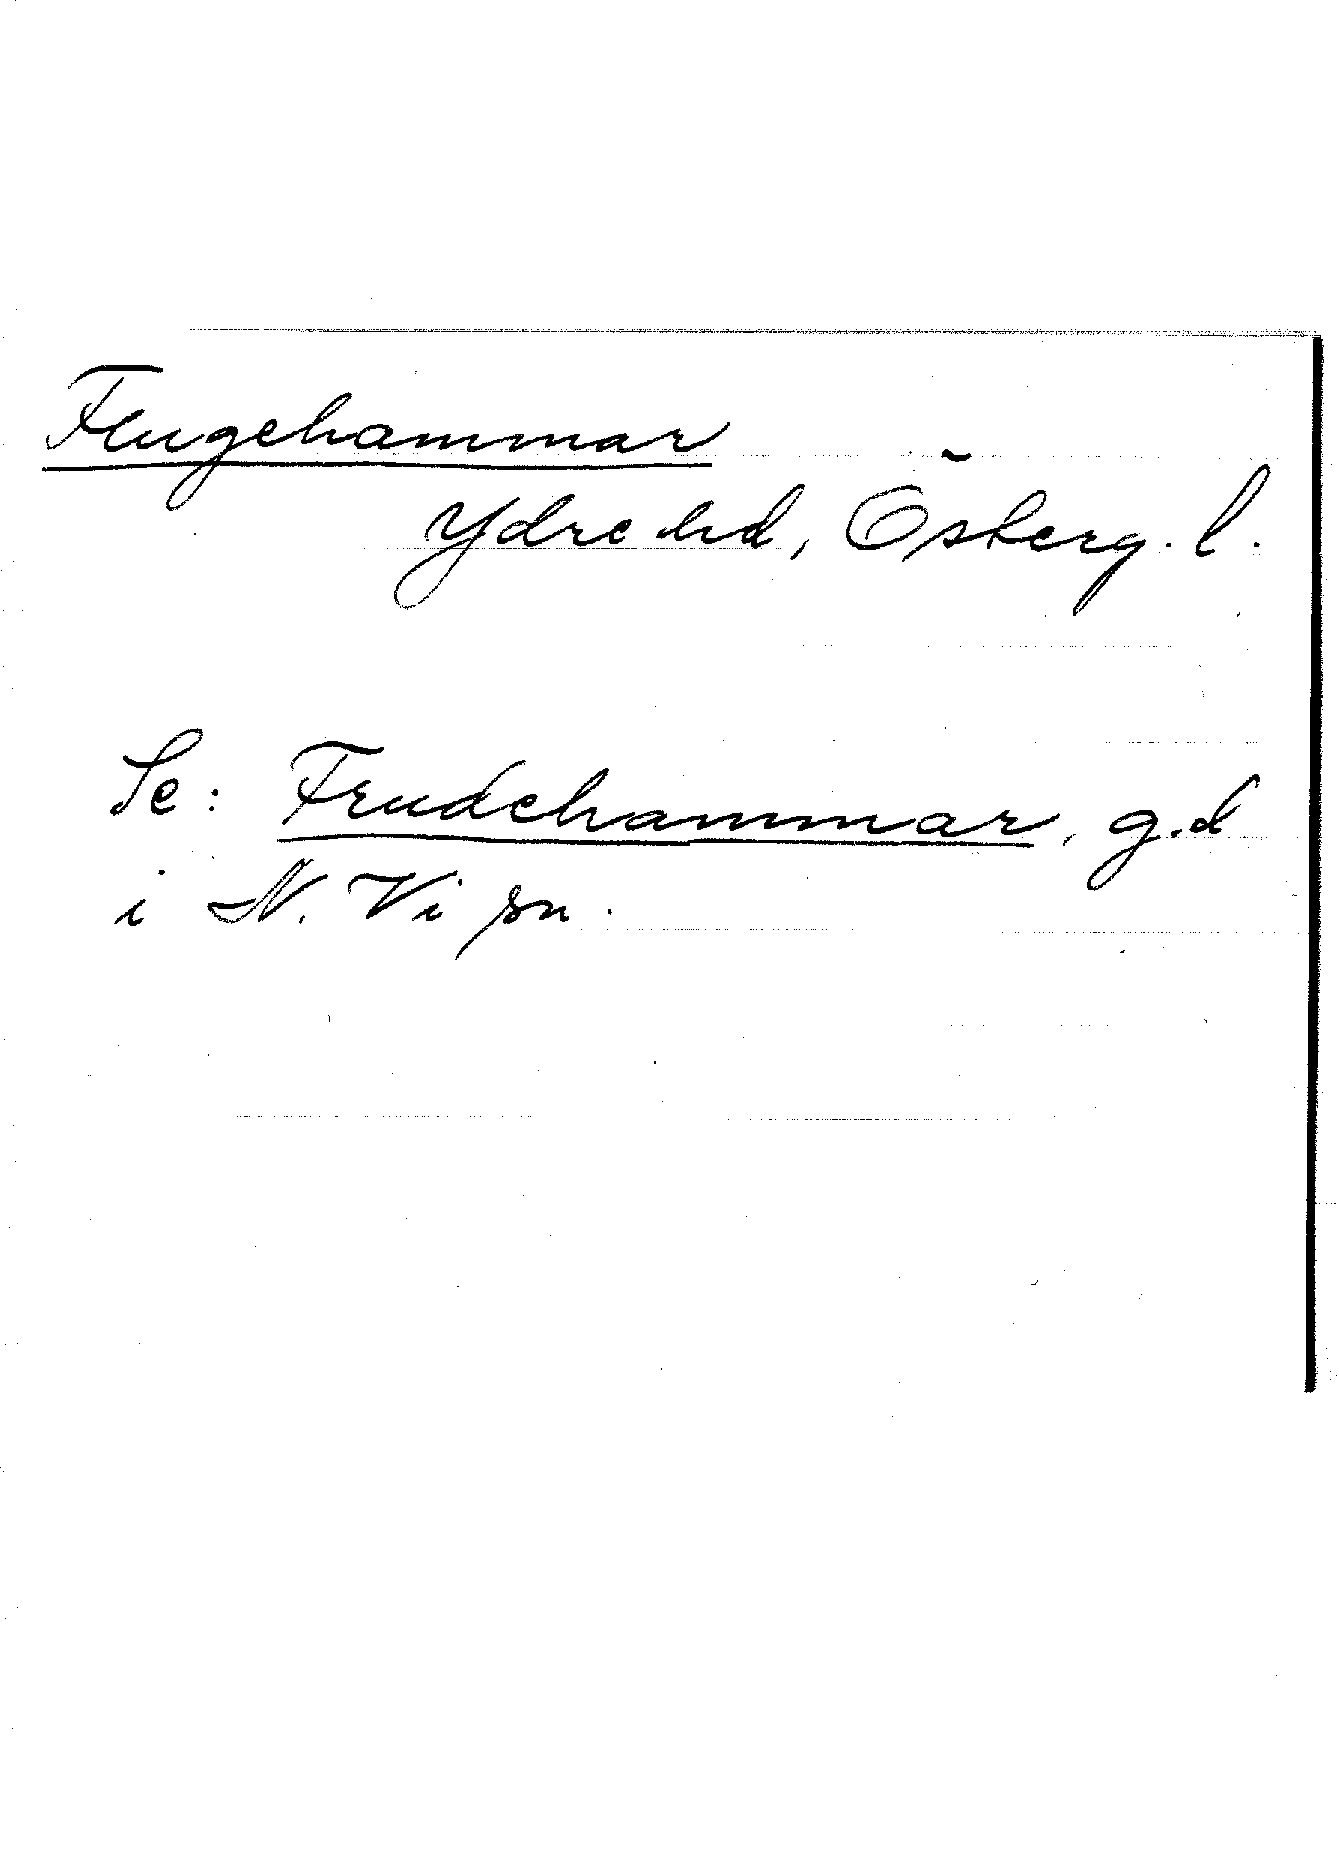 Flugehammar
Ydre hd, Österg. l.
Se: Frudehammar, g.d
i N. Vi sn.